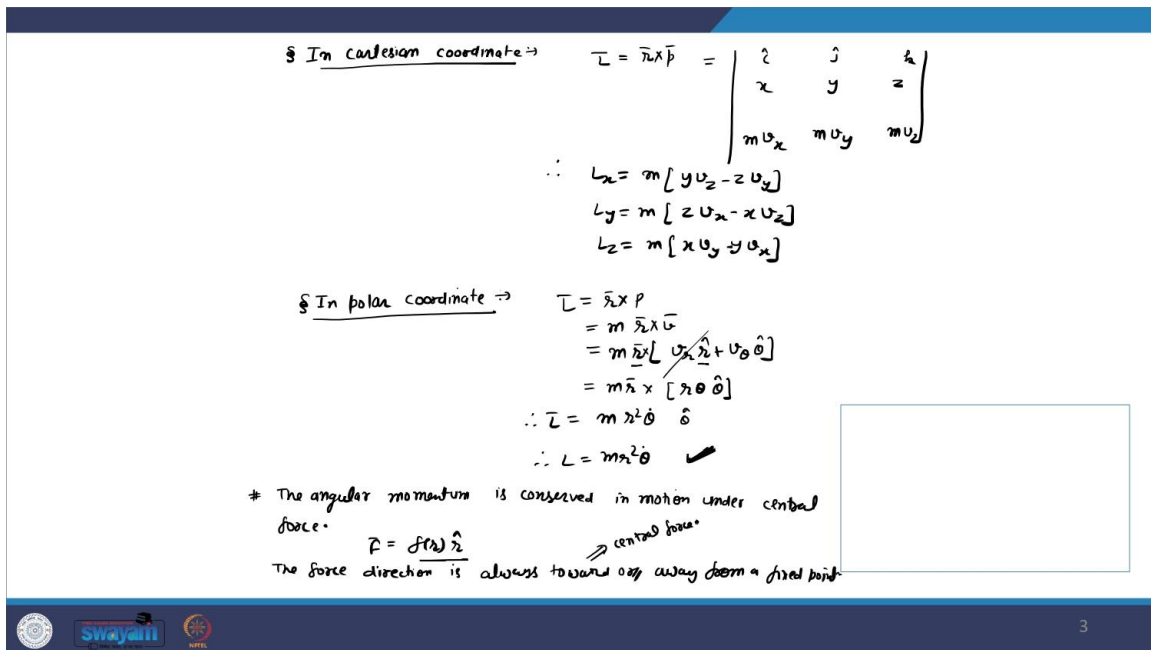 § In cartesian coordinate → L̄ = r̄ × p̄ = | î ĵ k̂ |
x y z
mvₓ mv_y mv_z
∴ Lₓ = m[yv_z - zv_y]
L_y = m[zvₓ - xv_z]
L_z = m[xv_y - yvₓ]
§ In polar coordinate → L̄ = r̄ × p
= m r̄ × v̄
= m r̄ × [v_r r̂ + v_θ θ̂]
= m r̄ × [rθ θ̂]
∴ L̄ = m r²θ̇ θ̂
∴ L = mr²θ̇ ✓
* The angular momentum is conserved in motion under central
force.
F̄ = f(r) r̂ ⇒ central force.
The force direction is always toward or away from a fixed point
swayam
NPTEL
3